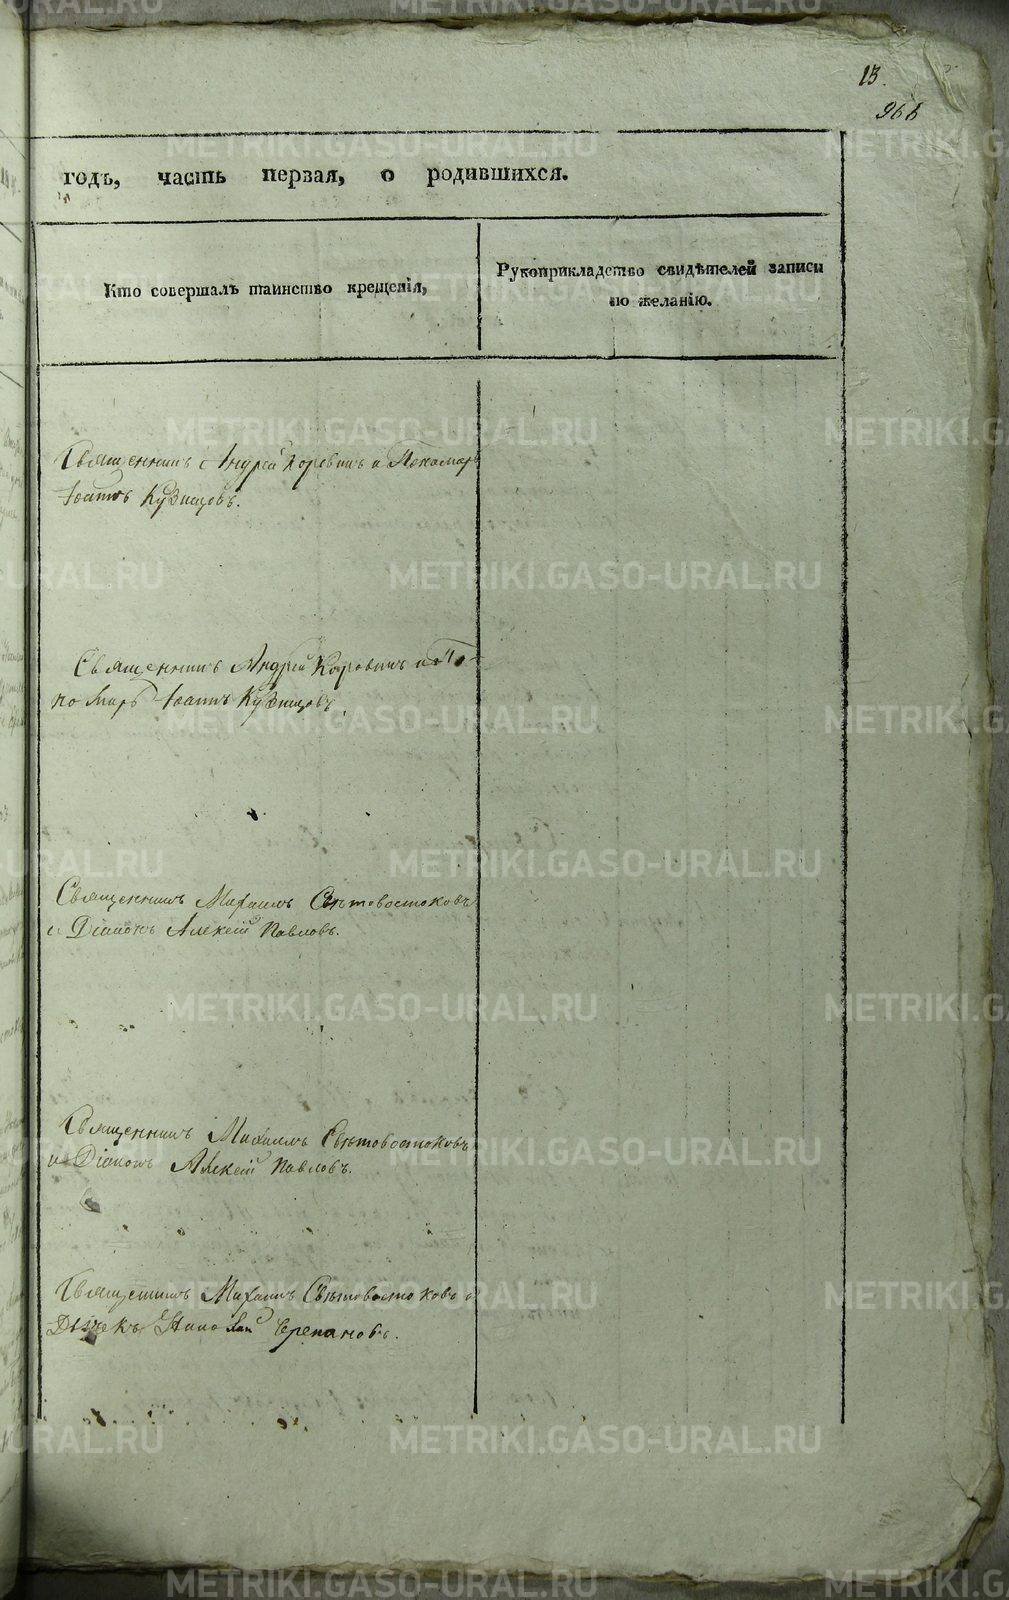 13.
966
годъ, часть первая, о родившихся.
Кто совершалъ таинство крещенія,
Рукоприкладство свидѣтелей записи
по желанію.
Священникъ Андрей Коровинъ и Пономарь
Іоаннъ Кузнецовъ.
Священникъ Андрей Коровинъ и По-
номарь Іоаннъ Кузнецовъ.
Священникъ Михаилъ Свѣтовостоковъ
и Діаконъ Алексій Павловъ.
Священникъ Михаилъ Свѣтовостоковъ
и Діаконъ Алексій Павловъ.
Священникъ Михаилъ Свѣтовостоковъ и
Дьячекъ Николай Черепановъ.
METRIKI.GASO-URAL.RU